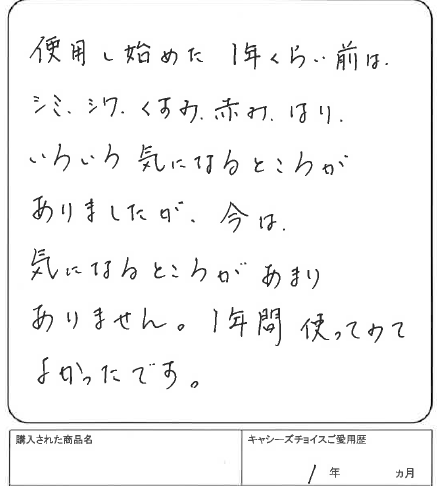 使用し始めた 1年くらい前は、
シミ、シワ、くすみ、赤み、はり、
いろいろ気になるところが
ありましたが、今は、
気になるところがあまり
ありません。1年間 使ってみて
よかったです。
購入された商品名
キャシーズチョイスご愛用歴
1年 ヵ月